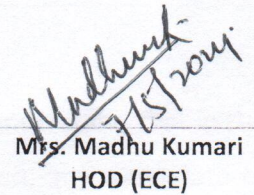 Madhuri
7/5/2024
Mrs. Madhu Kumari
HOD (ECE)